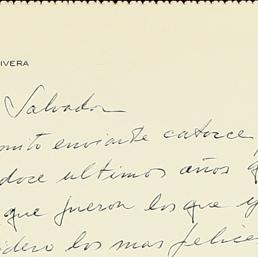 IVERA
Salvador
mito enviarte catorce
doce ultimos años q
que fueron los que y
idero los mas felices